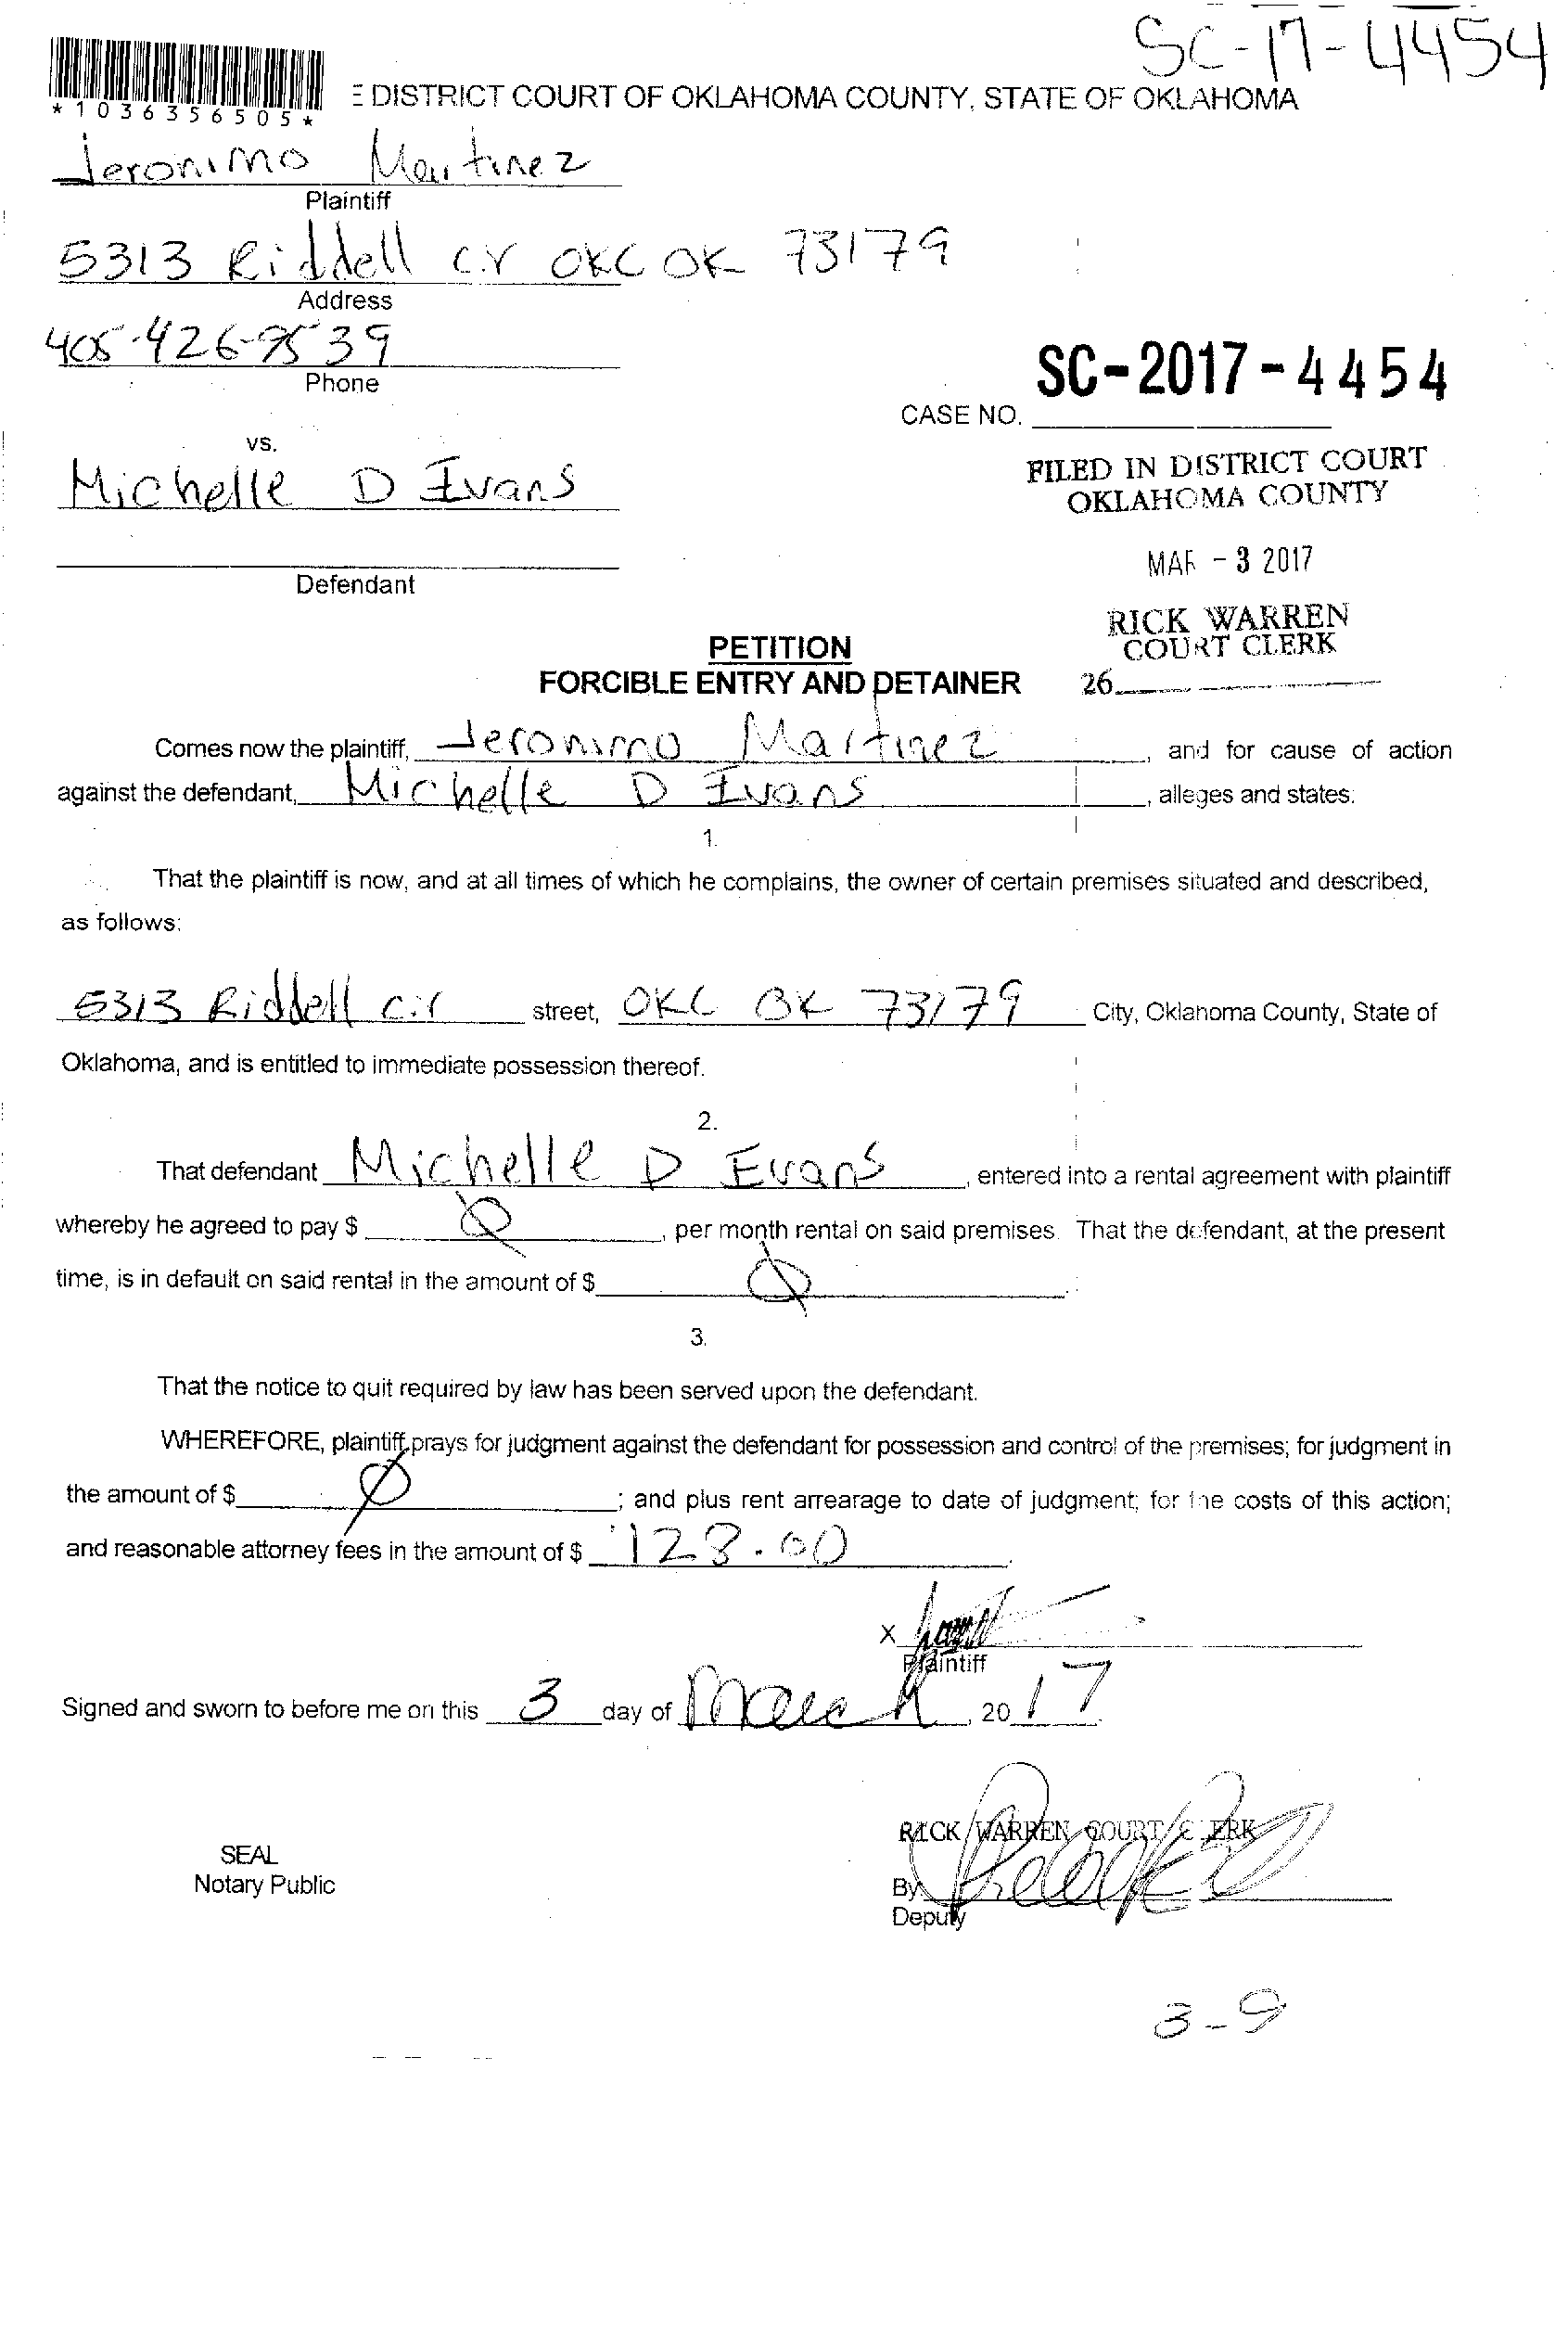 SC-17-4454
*1036356505*
E DISTRICT COURT OF OKLAHOMA COUNTY, STATE OF OKLAHOMA
Jeronimo Martinez
Plaintiff
5313 Riddell cir OKC OK 73179
Address
405-426-9539
Phone
SC-2017-4454
CASE NO.
vs.
Michelle D Evans
FILED IN DISTRICT COURT
OKLAHOMA COUNTY
MAR - 3 2017
Defendant
RICK WARREN
COURT CLERK
PETITION
FORCIBLE ENTRY AND DETAINER
26
Comes now the plaintiff, Jeronimo Martinez, and for cause of action
against the defendant, Michelle D Evans, alleges and states:
1.
That the plaintiff is now, and at all times of which he complains, the owner of certain premises situated and described,
as follows:
5313 Riddell cir street, OKC OK 73179 City, Oklahoma County, State of
Oklahoma, and is entitled to immediate possession thereof.
2.
That defendant Michelle D Evans, entered into a rental agreement with plaintiff
whereby he agreed to pay $ Ø, per month rental on said premises. That the defendant, at the present
time, is in default on said rental in the amount of $ Ø.
3.
That the notice to quit required by law has been served upon the defendant.
WHEREFORE, plaintiff prays for judgment against the defendant for possession and control of the premises; for judgment in
the amount of $ Ø; and plus rent arrearage to date of judgment; for the costs of this action;
and reasonable attorney fees in the amount of $ 128.00.
X
Plaintiff
Signed and sworn to before me on this 3 day of March, 2017.
RICK WARREN COURT CLERK
SEAL
Notary Public
By
Deputy
3-9